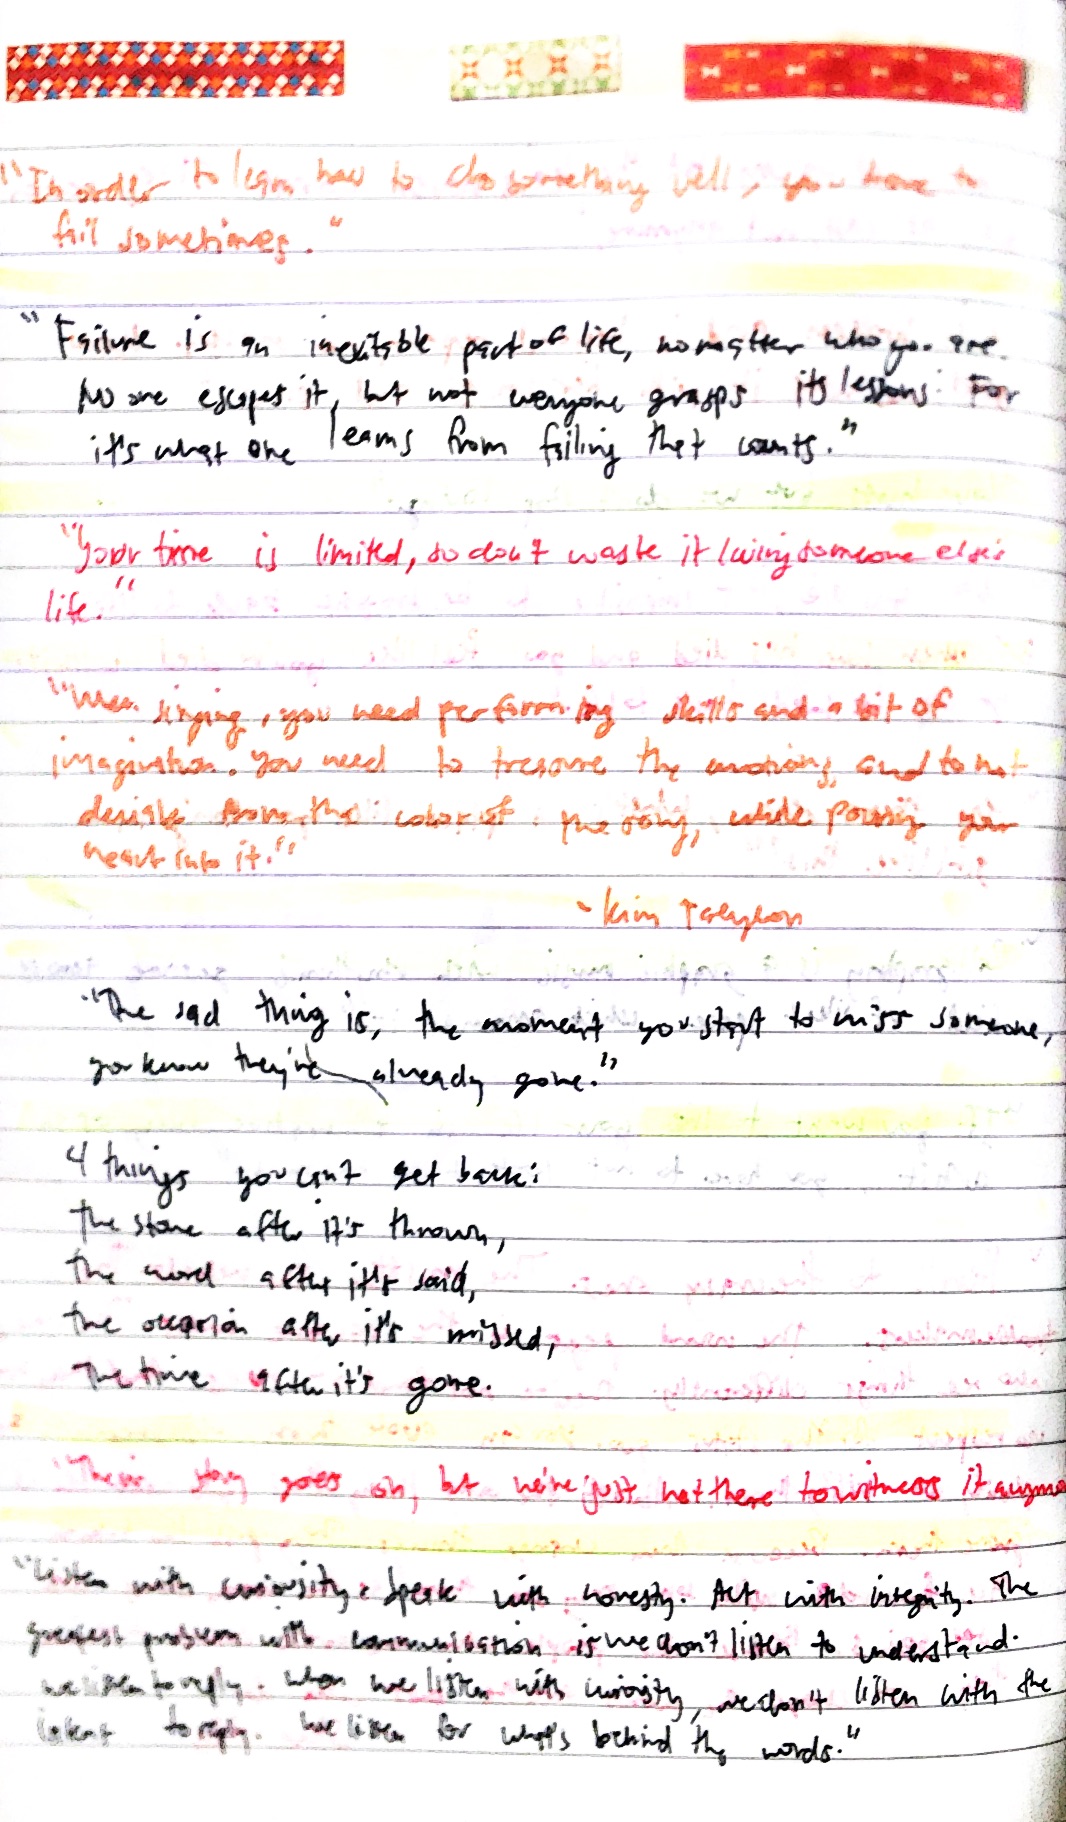 "In order to learn how to do something well, you have to
fail sometimes."
"Failure is an inevitable part of life, no matter who you are.
No one escapes it, but not everyone grasps its lessons. For
it's what one learns from failing that counts."
"Your time is limited, so don't waste it living someone else's
life."
"When singing, you need performing skills and a bit of
imagination. You need to treasure the emotions, and to not
deviate from the color of the song, while pouring your
heart into it."
- Kim Taeyeon
"The sad thing is, the moment you start to miss someone,
you know they're already gone."
4 things you can't get back:
The stone after it's thrown,
The word after it's said,
The occasion after it's missed,
The time after it's gone.
"Their story goes on, but we're just not there to witness it
"Listen with curiosity. Speak with honesty. Act with integrity. The
greatest problem with communication is we don't listen to understand.
we listen to reply. When we listen with curiosity, we don't listen with the
intent to reply. We listen for what's behind the words."